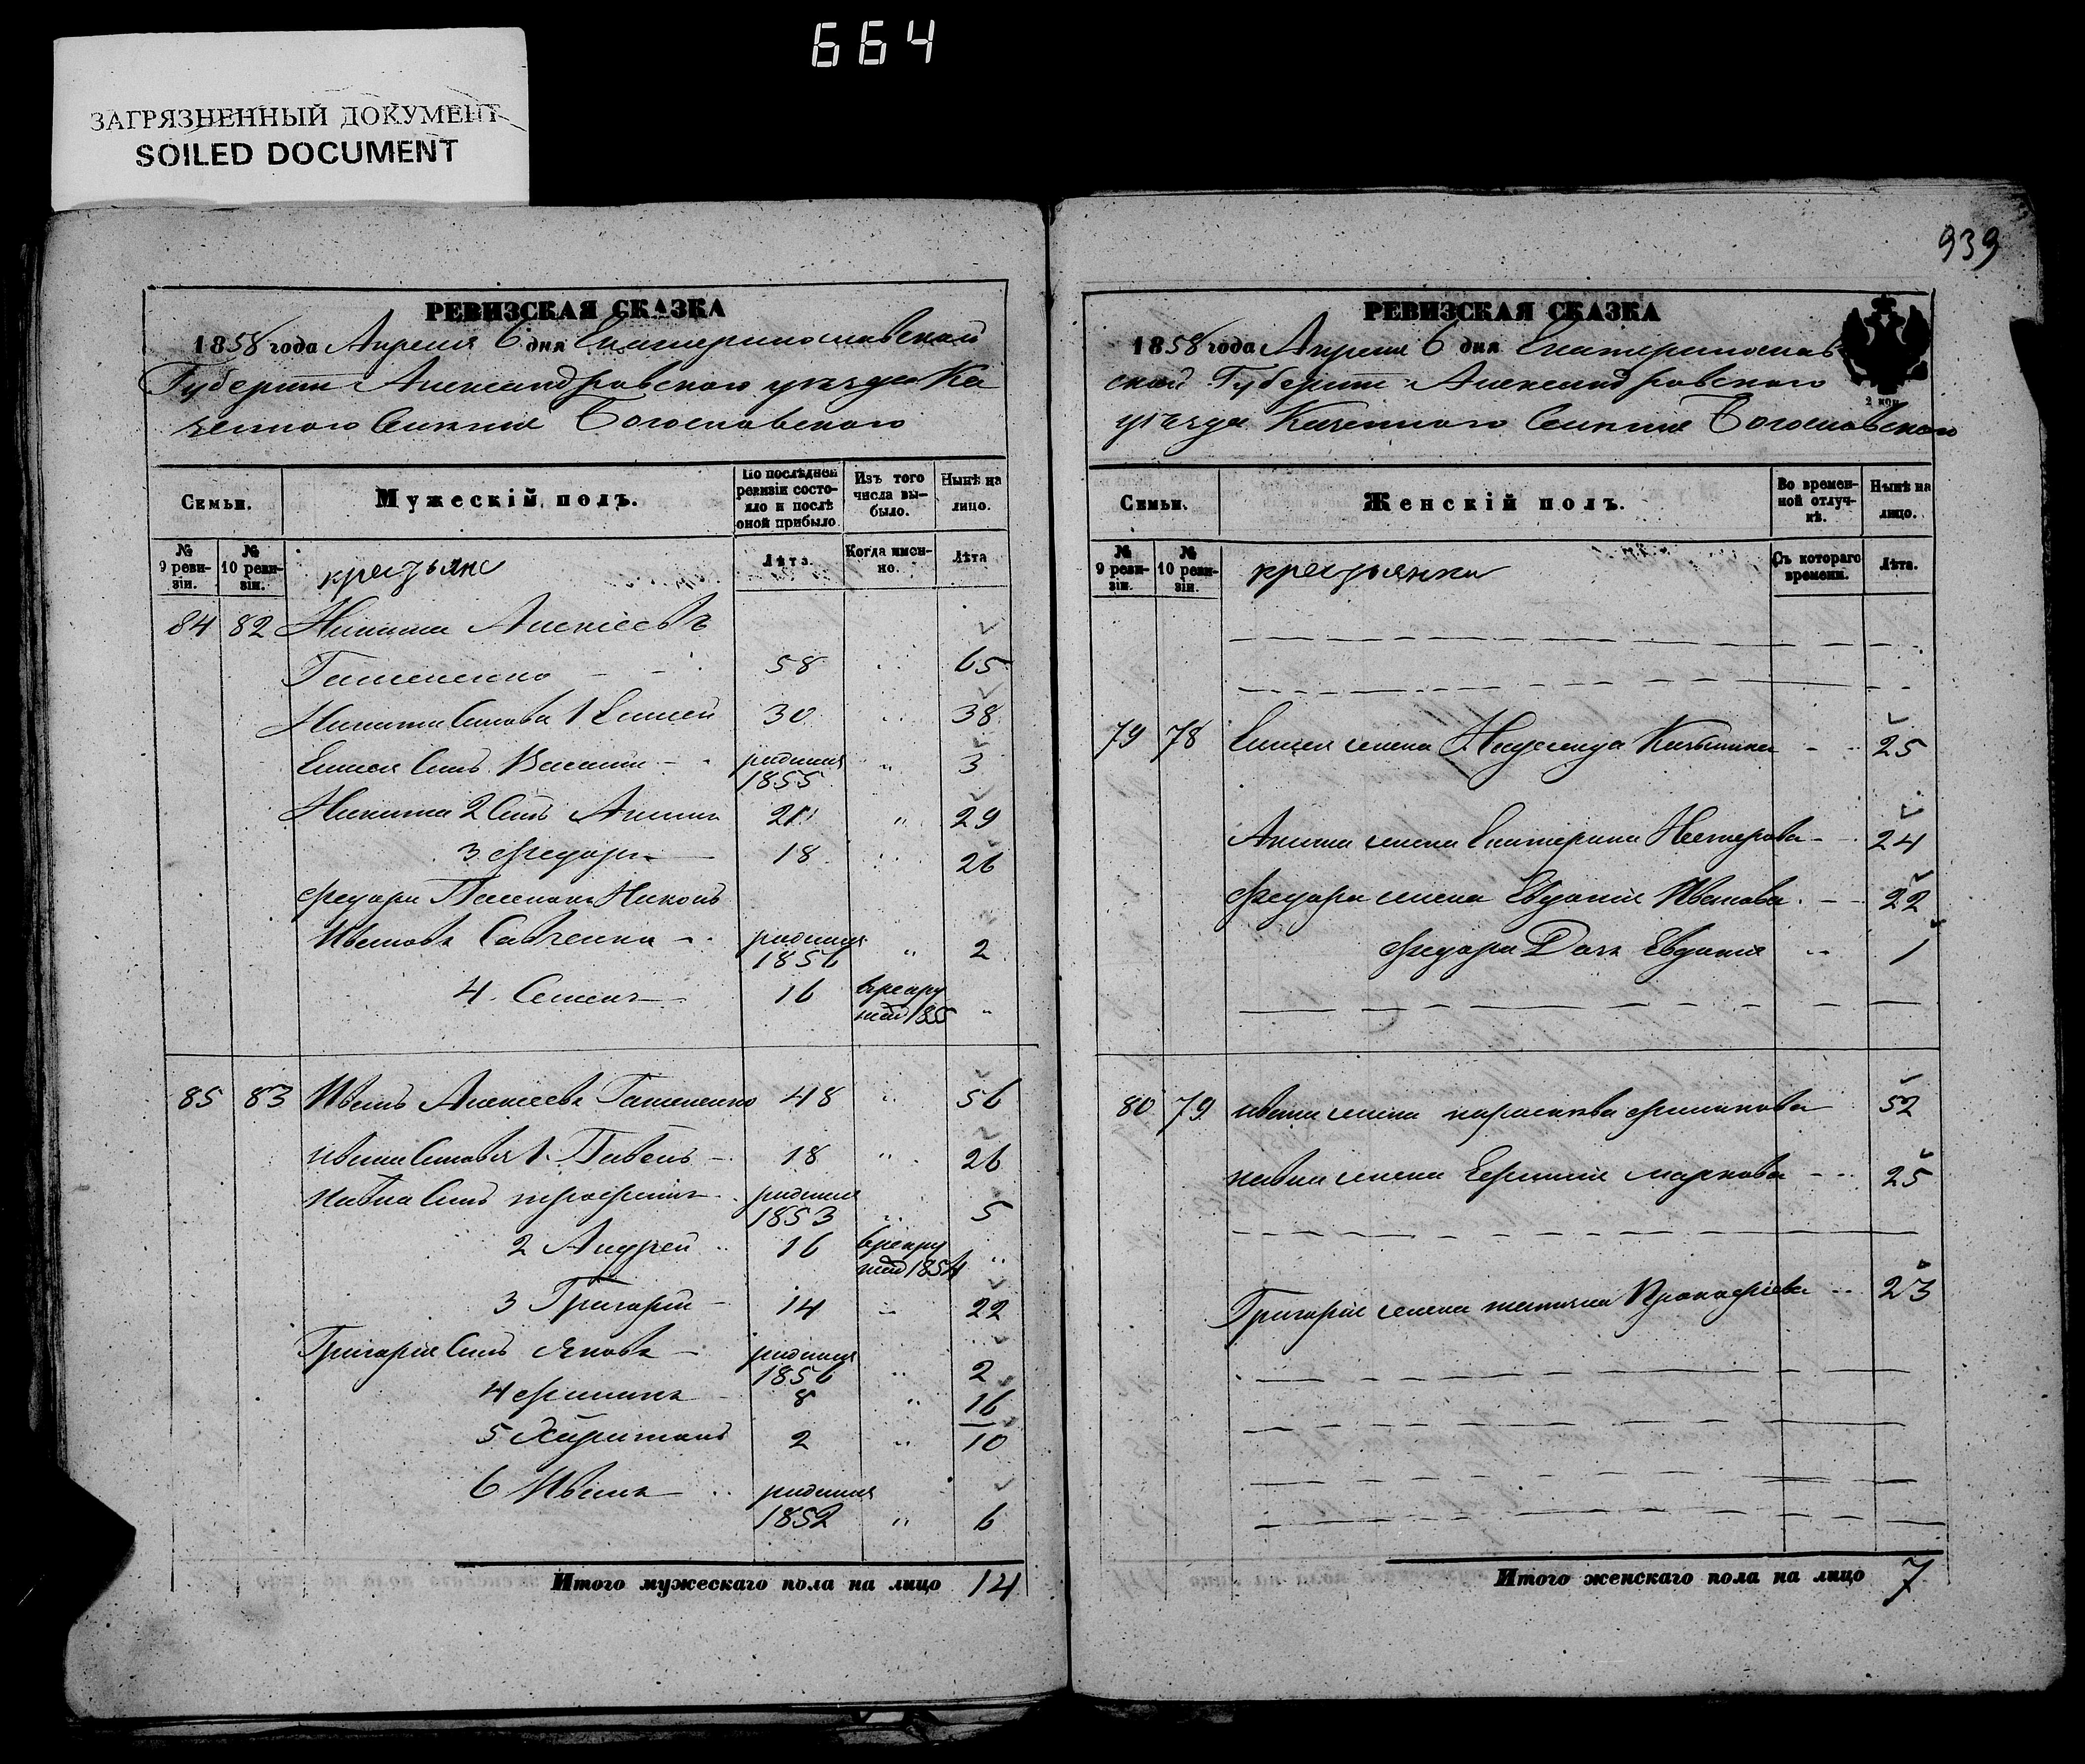 664
ЗАГРЯЗНЕННЫЙ ДОКУМЕНТ
SOILED DOCUMENT
РЕВИЗСКАЯ СКАЗКА
1858 года Апреля 6 дня Екатеринославской
Губернии Александровского уезда Ка
зенного Селения Богословского
Семьи.
Мужескій полъ.
По послѣдней ревизіи состояло и послѣ оной прибыло.
Изъ того числа выбыло.
Нынѣ на лицо.
№ 9 ревизіи.
№ 10 ревизіи.
крестьяне
Лѣта.
Когда именно.
Лѣта
84 82 Никита Алексеевъ
58 65
Никита Синовя 1 Елисей 30 38
Елисея Синъ Василий родился 1855 3
Никита 2 Синъ Аким 21 " 29
3 Федоръ 18 26
Федора
Савченка родился 1856 " 2
4. Семенъ 16 врекру ты 1855 "
85 83 Иванъ Алексеевъ 48 " 56
Ивана Синовя 1. Павелъ 18 " 26
Павла Синъ родился 1853 " 5
2 Андрей 16 врекру ты 1854 "
3 Григорий 14 22
Григория Синъ Яковъ родился 1856 " 2
4 Филипъ 8 " 16
5 Харитонъ 2 " 10
6 Иванъ родился 1852 " 6
Итого мужескаго пола на лицо 14
939
РЕВИЗСКАЯ СКАЗКА
1858 года Апреля 6 дня Екатеринослав
ской Губернии Александровского
уезда Казенного Селения Богословского
2 коп
Семьи.
Женскій полъ.
Во временной отлучкѣ.
Нынѣ на лицо.
№ 9 ревизіи.
№ 10 ревизіи.
крестьянки
Съ котораго времени.
Лѣта.
79 78 Елисея жена Надежда 25
Акима жена Екатерина Нестерова 24
Федора жена Евдокия Иванова 22
Федора Дочь Евдокия 1
80 79 Ивана жена параскева Филипова 52
павла жена Ефимия маркова 25
Григория жена татьяна Прокофиева 23
Итого женскаго пола на лицо 7